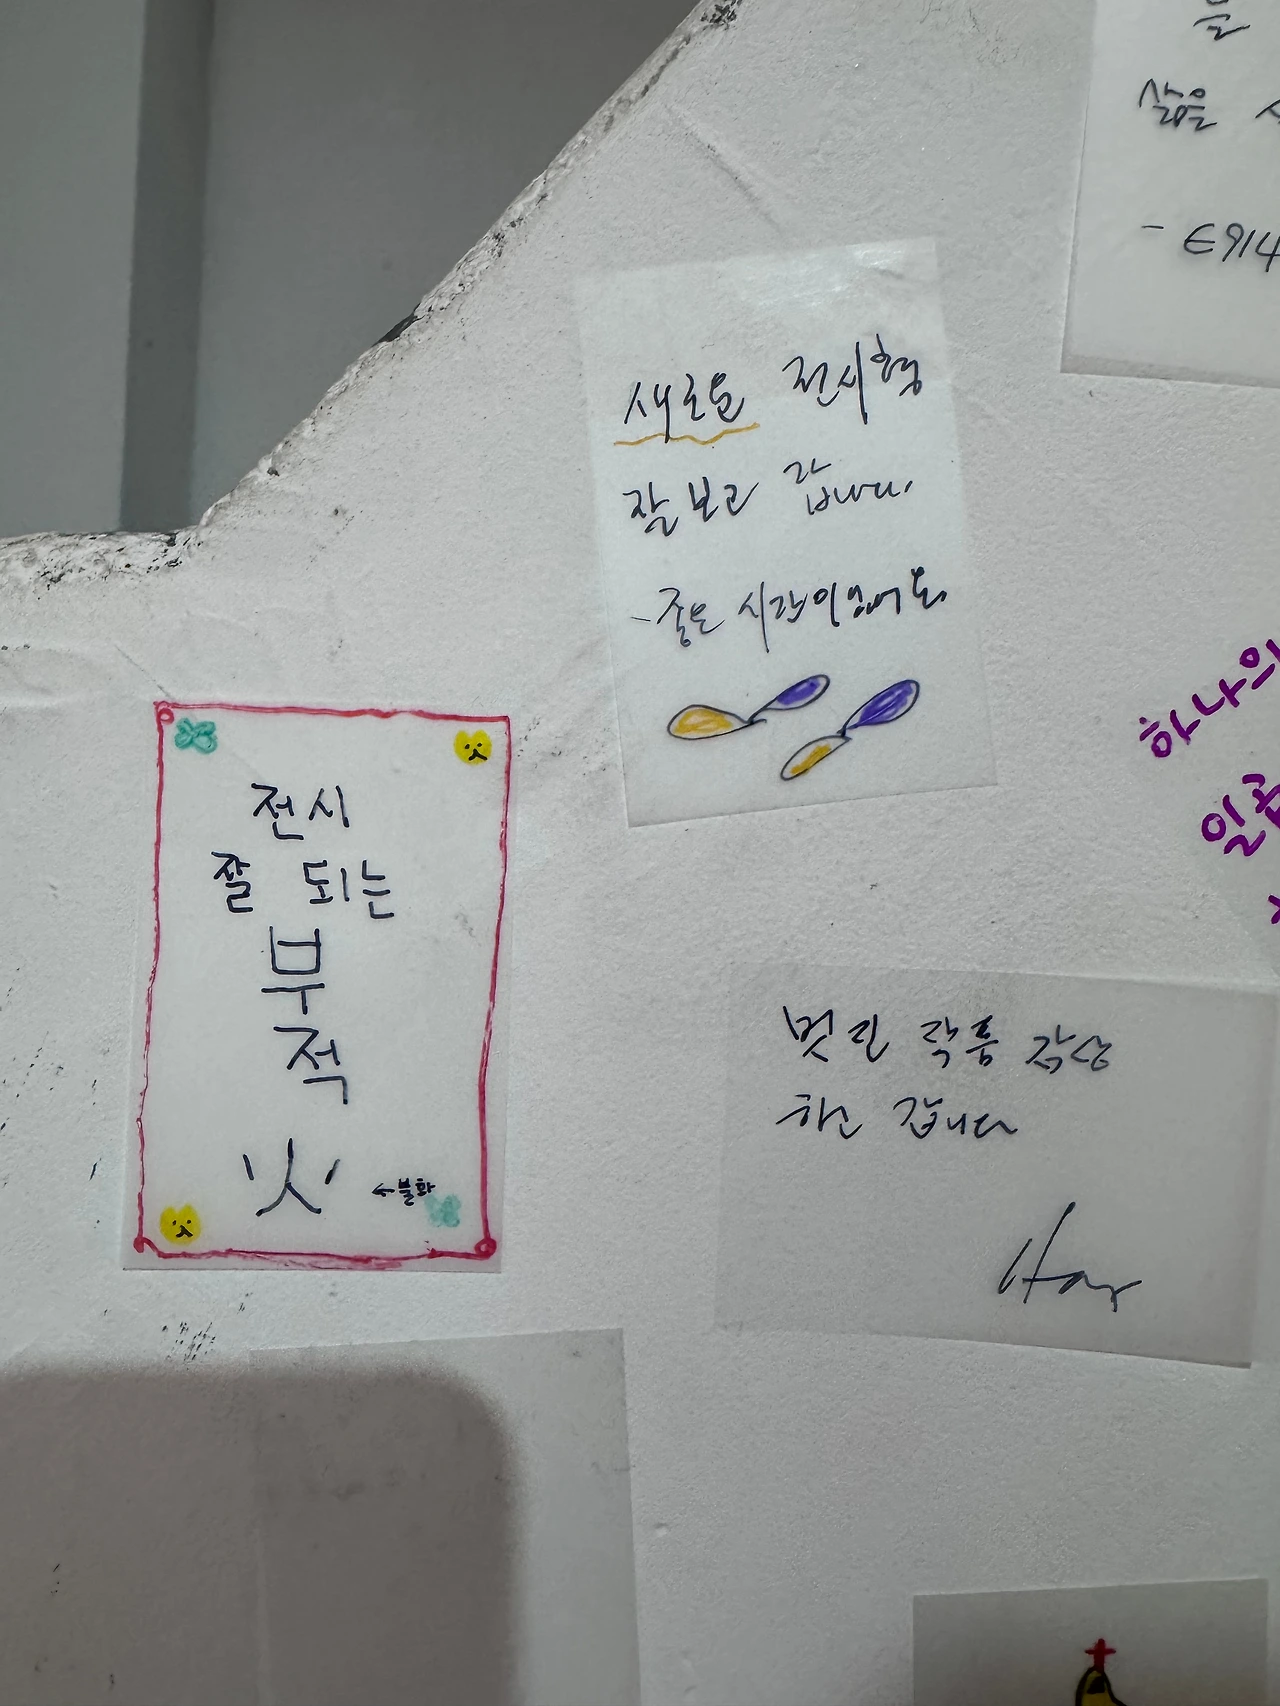 삶을
- E914
새로운 전시형
잘 보고 갑니다.
- 좋은 시간이었어요.
하나의
일
전시
잘 되는
부
적
火 ←불화
멋진 작품 감상
하고 갑니다